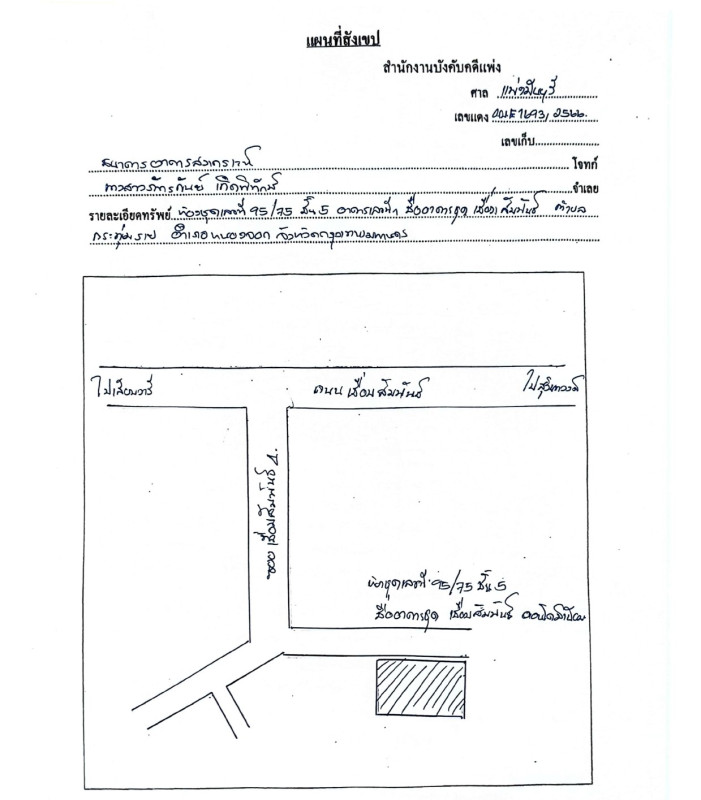 แผนที่สังเขป
สำนักงานบังคับคดีแพ่ง
ศาล แพ่งมีนบุรี
เลขแดง ผบE1693/2566
เลขเก็บ
ธนาคารอาคารสงเคราะห์ โจทก์
นางสาวภัทรกันย์ เกิดพิทักษ์ จำเลย
รายละเอียดทรัพย์ ห้องชุดเลขที่ 95/75 ชั้น 5 อาคารเลขที่ 1 ชื่ออาคารชุด เชื่อมสัมพันธ์ ตำบล
กระทุ่มราย อำเภอหนองจอก จังหวัดกรุงเทพมหานคร
ไปเลียบวารี ถนน เชื่อมสัมพันธ์ ไปสุวินทวงศ์
ซอย เชื่อมสัมพันธ์
ห้องชุดเลขที่ 95/75 ชั้น 5
ชื่ออาคารชุด เชื่อมสัมพันธ์ คอนโดมิเนียม